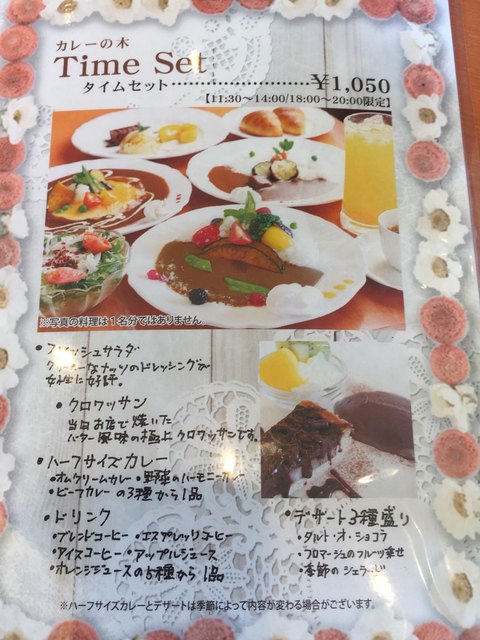 カレーの木
Time Set
タイムセット……………………￥1,050
【11:30〜14:00/18:00〜20:00限定】
※写真の料理は１名分ではありません。
・フレッシュサラダ
クリーミーなナッツのドレッシングが
女性に好評。
・クロワッサン
当日お店で焼いた
バター風味の極上クロワッサンです。
・ハーフサイズカレー
・オムクリームカレー ・野菜のハーモニーカレー
・ビーフカレー の3種から1品
・ドリンク
・ブレンドコーヒー ・エスプレッソコーヒー
・アイスコーヒー ・アップルジュース
・オレンジジュースの5種から1品
・デザート2種盛り
・タルト・オ・ショコラ
・フロマージュのフルーツ乗せ
・季節のシェラード
※ハーフサイズカレーとデザートは季節によって内容が変わる場合がございます。